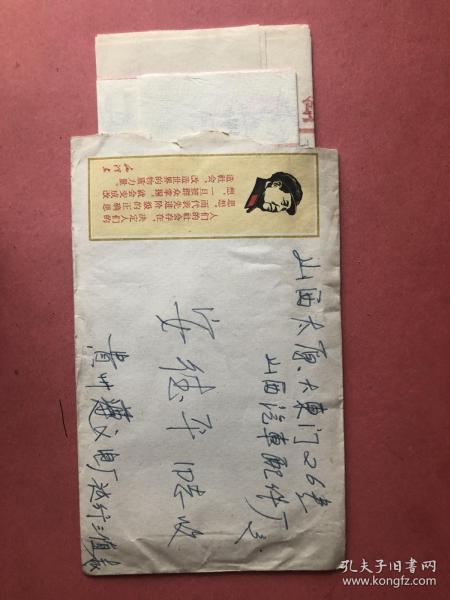 人们的社会存在,决定人们的
思想。而代表先进阶级的正确思
想,一旦被群众掌握,就会变成改
造社会、改造世界的物质力量。
毛泽东
山西太原、大東门26号
山西汽車配件厂交
安德平 同志收
貴州遵义电厂运行三值
孔夫子旧书网
www.kongfz.com